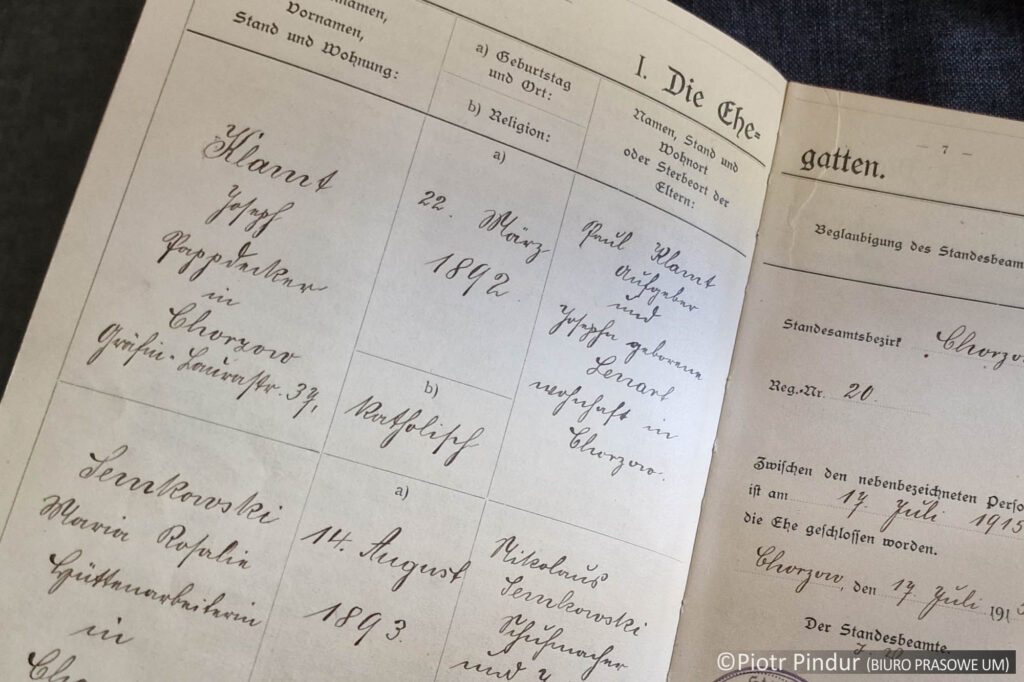 namen,
Vornamen,
Stand und Wohnung:
a) Geburtstag
und Ort:
b) Religion:
I. Die Ehe-
Namen, Stand und
Wohnort
oder Sterbeort der
Eltern:
Klamt
Joseph
Pappdecker
in
Chorzow
Gräfin-Laurastr. 37,
a)
22. März
1892
b)
katholisch
Paul Klamt
Aufgeber
und
Josepha geborene
Lenart
wohnhaft in
Chorzow.
Semkowski
Maria Rosalie
Hüttenarbeiterin
in
Cho
a)
14. August
1893.
Nikolaus
Semkowski
Schuhmacher
und
— 7 —
gatten.
Beglaubigung des Standesbeam
Standesamtsbezirk Chorzo
Reg.-Nr. 20.
Zwischen den nebenbezeichneten Perso
ist am 17. Juli 1915
die Ehe geschlossen worden.
Chorzow, den 17. Juli 191
Der Standesbeamte.
©Piotr Pindur (BIURO PRASOWE UM)